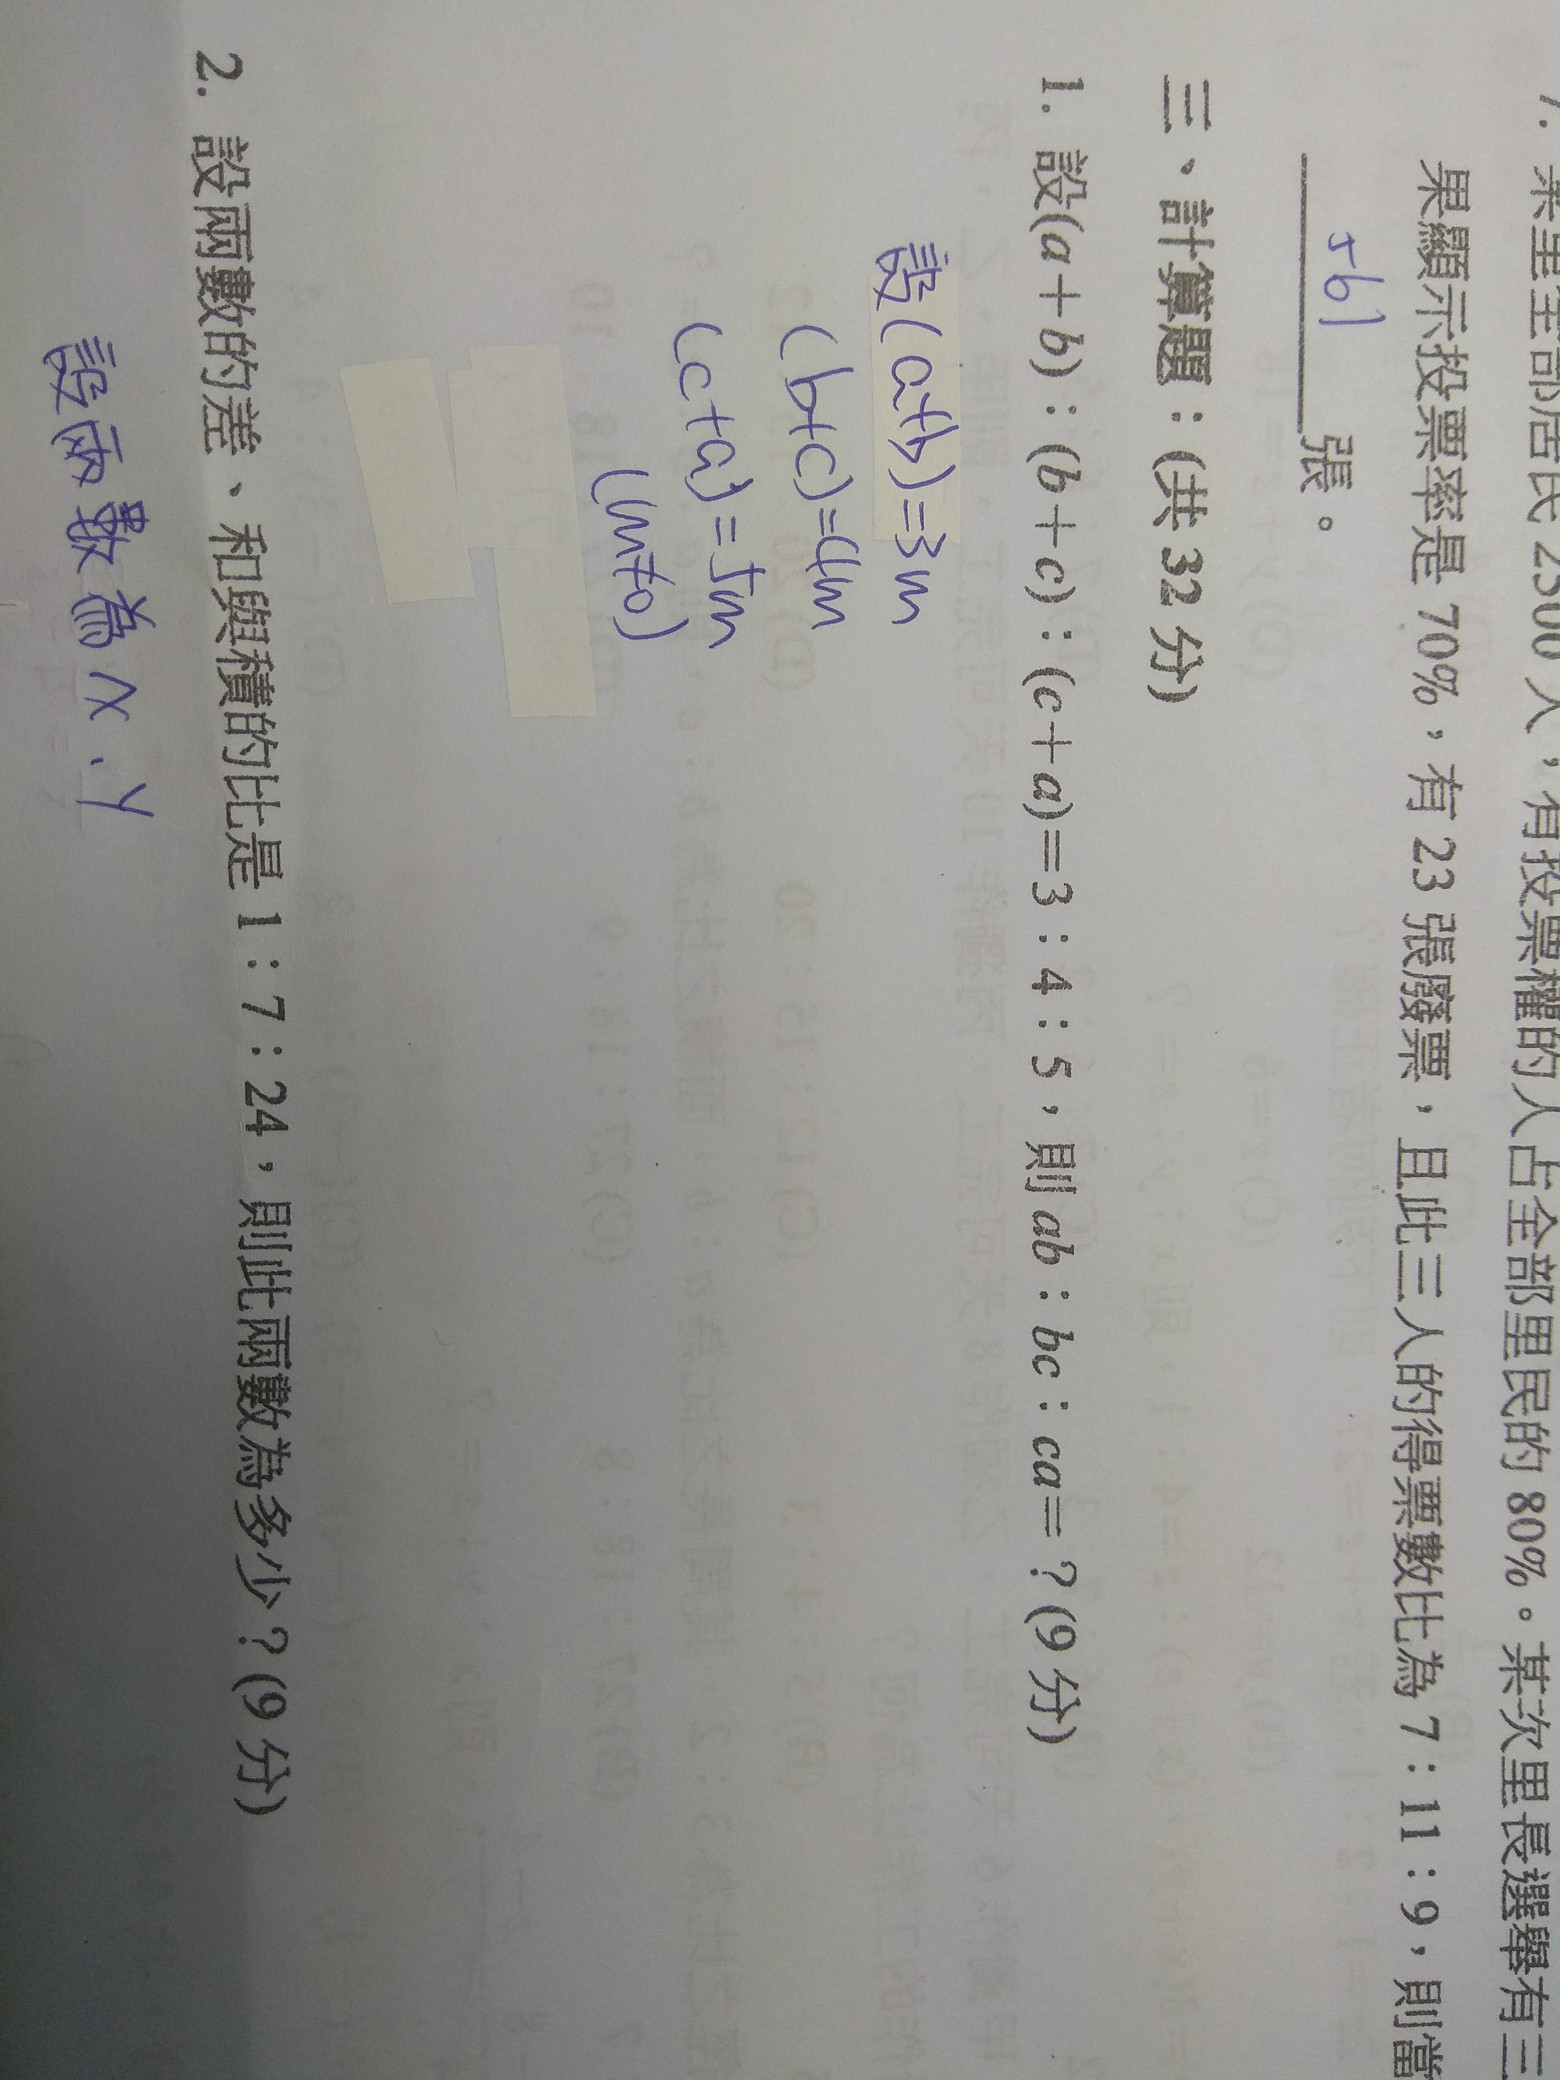 7. 某里全部居民 2500 人，有投票權的人占全部里民的 80%。某次里長選舉有三
果顯示投票率是 70%，有 23 張廢票，且此三人的得票數比為 7：11：9，則當
561 張。
三、計算題：(共 32 分)
1. 設(a＋b)：(b＋c)：(c＋a)＝3：4：5，則 ab：bc：ca＝？(9 分)
設(a+b)=3m
(b+c)=4m
(c+a)=5m
(m≠0)
2. 設兩數的差、和與積的比是 1：7：24，則此兩數為多少？(9 分)
設兩數為 x、y